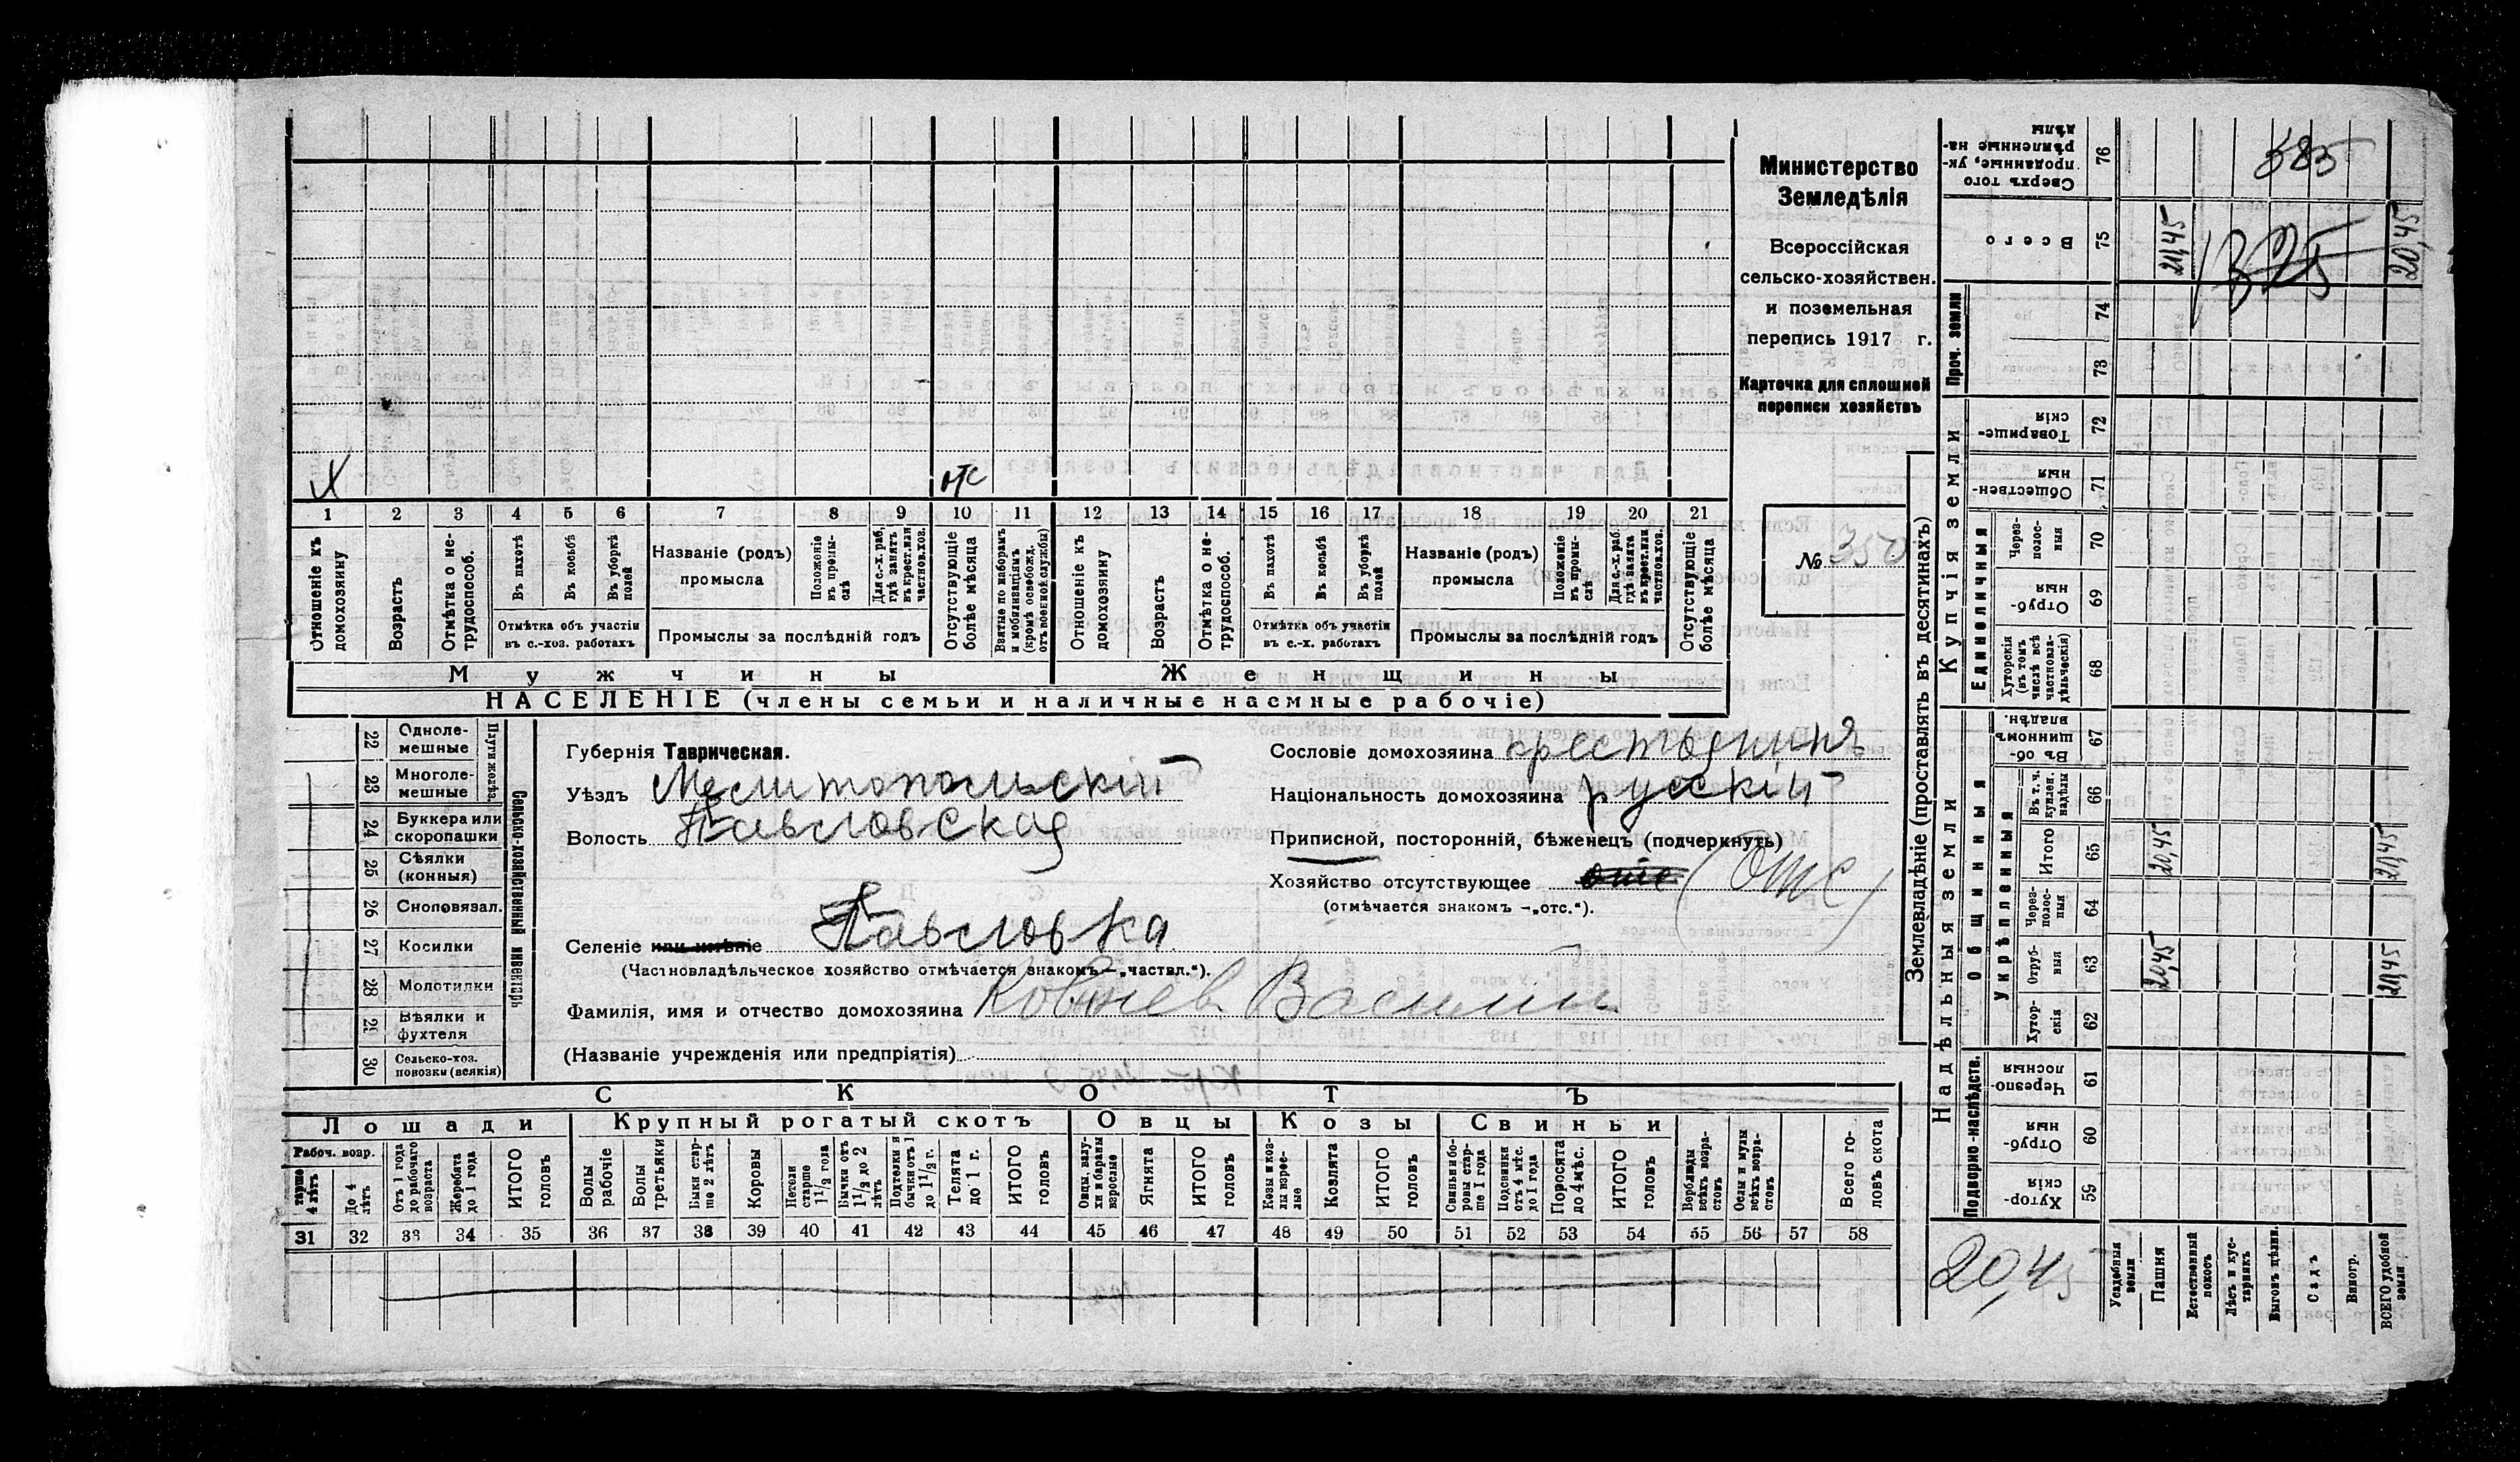 Министерство
Земледѣлія
Всероссійская
сельско-хозяйствен.
и поземельная
перепись 1917 г.
Карточка для сплошной
переписи хозяйствъ
№ 350
Х
отс
1 2 3 4 5 6 7 8 9 10 11 12 13 14 15 16 17 18 19 20 21
Отношеніе къ домохозяину
Возрастъ
Отмѣтка о не-трудоспособ.
Въ пахотѣ
Въ косьбѣ
Въ уборкѣ полей
Отмѣтка объ участіи въ с.-хоз. работахъ
Названіе (родъ) промысла
Положеніе въ промы-слѣ
Для с.-х. раб. гдѣ занятъ въ крест. или частнов. хоз.
Промыслы за послѣдній годъ
Отсутствующіе болѣе мѣсяца
Взятые по наборамъ и мобилизаціямъ (кромѣ освобожд. отъ военной службы)
Отношеніе къ домохозяину
Возрастъ
Отмѣтка о не-трудоспособ.
Въ пахотѣ
Въ косьбѣ
Въ уборкѣ полей
Отмѣтка объ участіи въ с.-х. работахъ
Названіе (родъ) промысла
Положеніе въ промы-слѣ
Для с.-х. раб. гдѣ занята въ крест. или частнов. хоз.
Промыслы за послѣдній годъ
Отсутствующіе болѣе мѣсяца
Мужчины
Женщины
НАСЕЛЕНІЕ (члены семьи и наличные наемные рабочіе)
22 Одноле-мешные
23 Многоле-мешные
Плуги желѣз.
24 Буккера или скоропашки
25 Сѣялки (конныя)
26 Сноповязал.
27 Косилки
28 Молотилки
29 Вѣялки и фухтеля
30 Сельско-хоз. повозки (всякія)
Сельско-хозяйственный инвентарь
Губернія Таврическая.
Уѣздъ Мелитопольскій
Волость Павловская
Селеніе или имѣніе Павловка
(Частновладѣльческое хозяйство отмѣчается знакомъ — „частвл.“).
Фамилія, имя и отчество домохозяина Василій
(Названіе учрежденія или предпріятія)
Сословіе домохозяина крестьянинъ
Національность домохозяина русскій
Приписной, посторонній, бѣженецъ (подчеркнуть)
Хозяйство отсутствующее отс (Отс)
(отмѣчается знакомъ — „отс.“).
СКОТЪ
Лошади
Крупный рогатый скотъ
Овцы
Козы
Свиньи
Рабоч. возр.
старше 4 лѣтъ
До 4 лѣтъ
Отъ 1 года до рабочаго возраста
Жеребята до 1 года
ИТОГО головъ
Волы рабочіе
Волы третьяки
Быки стар-ше 2 лѣтъ
Коровы
Нетели старше 1 1/2 года
Бычки отъ 1 1/2 до 2 лѣтъ
Подтелки и бычки отъ 1 до 1 1/2 г.
Телята до 1 г.
ИТОГО головъ
Овцы, валу-хи и бараны взрослые
Ягнята
ИТОГО головъ
Козы и коз-лы взрос-лые
Козлята
ИТОГО головъ
Свиньи и бо-ровы стар-ше 1 года
Подсвинки отъ 4 мѣс. до 1 года
Поросята до 4 мѣс.
ИТОГО головъ
Верблюды всѣхъ возра-стовъ
Ослы и мулы всѣхъ возра-стовъ
Всего го-ловъ скота
31 32 33 34 35 36 37 38 39 40 41 42 43 44 45 46 47 48 49 50 51 52 53 54 55 56 57 58
Землевладѣніе (проставлять въ десятинахъ)
Надѣльныя земли
Купчія земли
Проч. земли
Подворно-наслѣдств.
Общинныя
Укрѣпленныя
Единоличныя
76 Сверхъ того проданные, ук-рѣпленные на-дѣлы
75 Всего
74
73
72 Товарище-скія
71 Обществен-ныя
70 Через-полос-ныя
69 Отруб-ныя
68 Хуторскія (въ томъ числѣ всѣ частновла-дѣльческія)
67 Въ об-щинномъ владѣн.
66 Въ т. ч. куплен. надѣлы
65 Итого
64 Через-полос-ныя
63 Отруб-ныя
62 Хутор-скія
61 Черезпо-лосныя
60 Отруб-ныя
59 Хутор-скія
Усадебныя земли
Пашня
Естественный покосъ
Лѣсъ и кус-тарникъ
Выгонъ цѣлин.
Садъ
Виногр.
ВСЕГО удобной земли
385
20,45
20,45
20,45
20,45
20,45
20,45
20,45